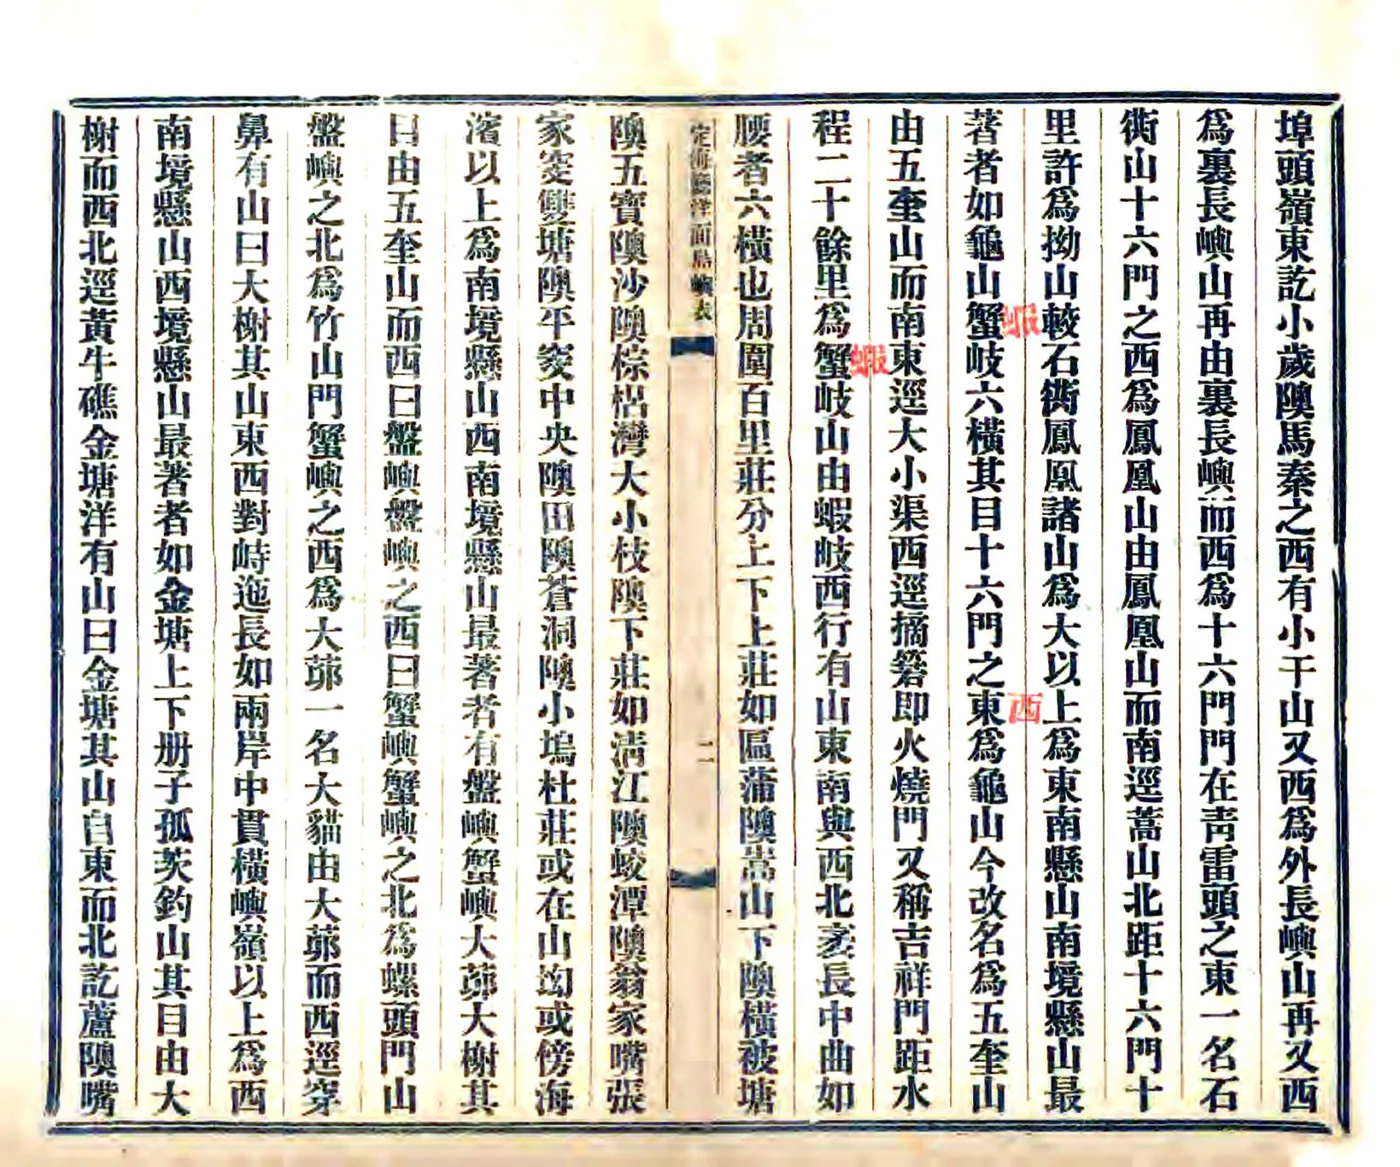 埠頭嶺東訖小歲隩馬秦之西有小干山又西爲外長嶼山再又西
爲裏長嶼山再由裏長嶼而西爲十六門門在靑雷頭之東一名石
衖山十六門之西爲鳳凰山由鳳凰山而南逕蒿山北距十六門十
里許爲拗山較石衖鳳凰諸山爲大以上爲東南懸山南境懸山最
著者如龜山蟹岐六橫其目十六門之東爲龜山今改名爲五奎山
蝦
西
由五奎山而南東逕大小渠西逕摘箬即火燒門又稱吉祥門距水
蝦
程二十餘里爲蟹岐山由蝦岐西行有山東南與西北袤長中曲如
腰者六橫也周圍百里莊分上下上莊如區蒲隩嵩山下隩橫被塘
定海廳洋面島嶼表
二
隩五寶隩沙隩棕梠灣大小枝隩下莊如淸江隩蛟潭隩翁家嘴張
家突雙塘隩平突中央隩田隩蒼洞隩小塢杜莊或在山坳或傍海
濱以上爲南境懸山西南境懸山最著者有盤嶼蟹嶼大茆大榭其
目由五奎山而西曰盤嶼盤嶼之西曰蟹嶼蟹嶼之北爲螺頭門山
盤嶼之北爲竹山門蟹嶼之西爲大茆一名大貓由大茆而西逕穿
鼻有山曰大榭其山東西對峙迤長如兩岸中貫橫嶼嶺以上爲西
南境懸山西境懸山最著者如金塘上下册子孤茨釣山其目由大
榭而西北逕黃牛礁金塘洋有山曰金塘其山自東而北訖蘆隩嘴